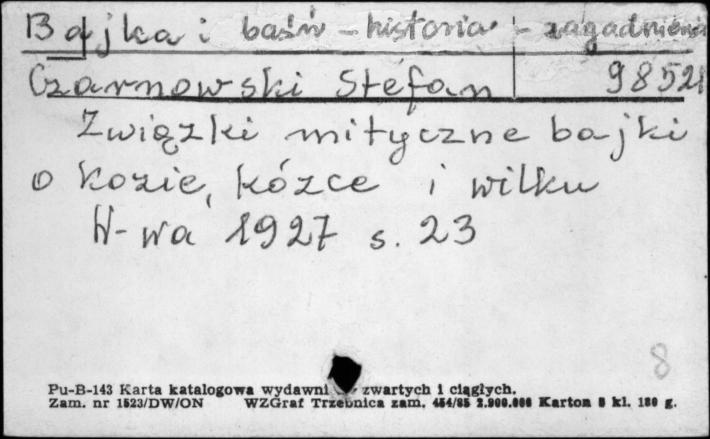 Bajka i baśń - historia - zagadnienia
Czarnowski Stefan 98521
Związki mityczne bajki
o kozie, kózce i wilku
W-wa 1927 s. 23
8
Pu-B-143 Karta katalogowa wydawni zwartych i ciągłych.
Zam. nr 1523/DW/ON WZGraf Trzebnica zam. 454/85 2.900.000 Karton 8 kl. 180 g.